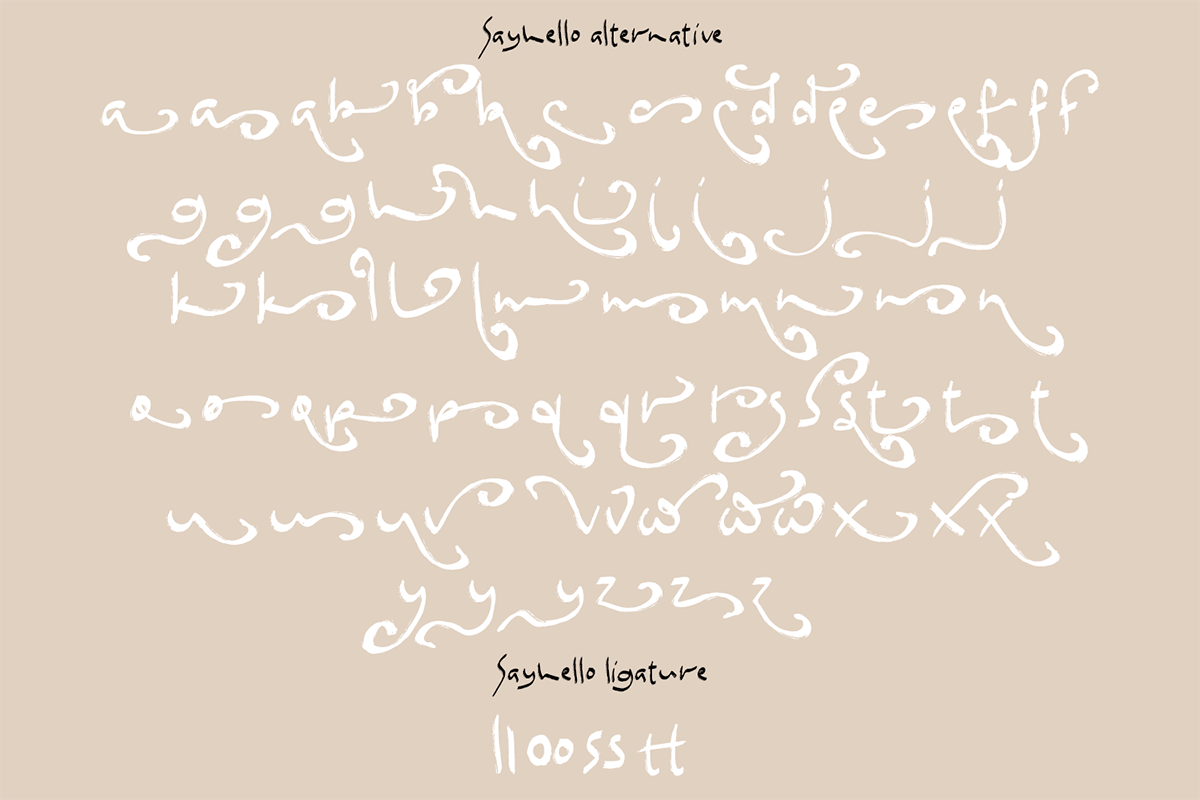 Sayhello alternative
a a a b b b c c c d d e e e f f f
g g g h h h i i i j j j
k k l l l m m m n n n
o o o p p q q r r s s s t t t
u u u v v w w w x x x
y y y z z z
Sayhello ligature
ll oo ss tt